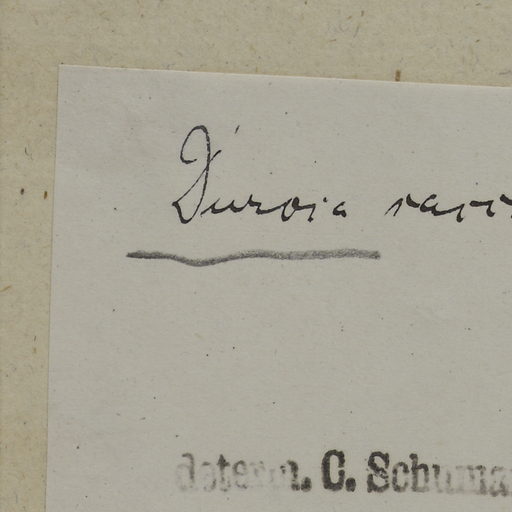 Duroia
determ. C. Schuma